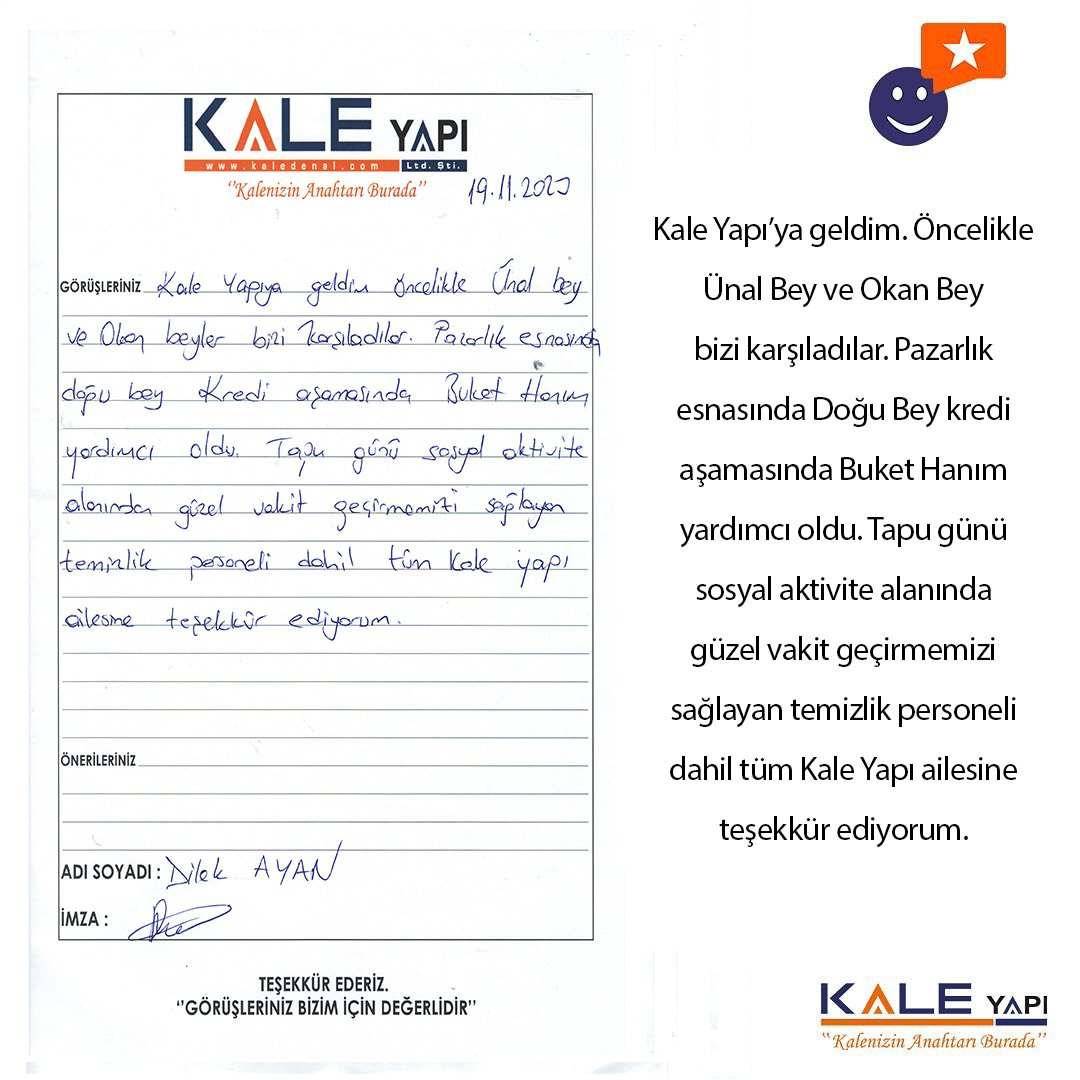 KALE YAPI
www.kaledenal.com Ltd. Şti.
"Kalenizin Anahtarı Burada"
19.11.2020
GÖRÜŞLERİNİZ Kale Yapıya geldim öncelikle Ünal bey
ve Okan beyler bizi karşıladılar. Pazarlık esnasında
doğu bey Kredi aşamasında Buket Hanım
yardımcı oldu. Tapu günü sosyal aktivite
alanında güzel vakit geçirmemizi sağlayan
temizlik personeli dahil tüm Kale yapı
ailesine teşekkür ediyorum.
ÖNERİLERİNİZ
ADI SOYADI : Dilek AYAN
İMZA :
TEŞEKKÜR EDERİZ.
"GÖRÜŞLERİNİZ BİZİM İÇİN DEĞERLİDİR"
Kale Yapı'ya geldim. Öncelikle
Ünal Bey ve Okan Bey
bizi karşıladılar. Pazarlık
esnasında Doğu Bey kredi
aşamasında Buket Hanım
yardımcı oldu. Tapu günü
sosyal aktivite alanında
güzel vakit geçirmemizi
sağlayan temizlik personeli
dahil tüm Kale Yapı ailesine
teşekkür ediyorum.
KALE YAPI
"Kalenizin Anahtarı Burada"